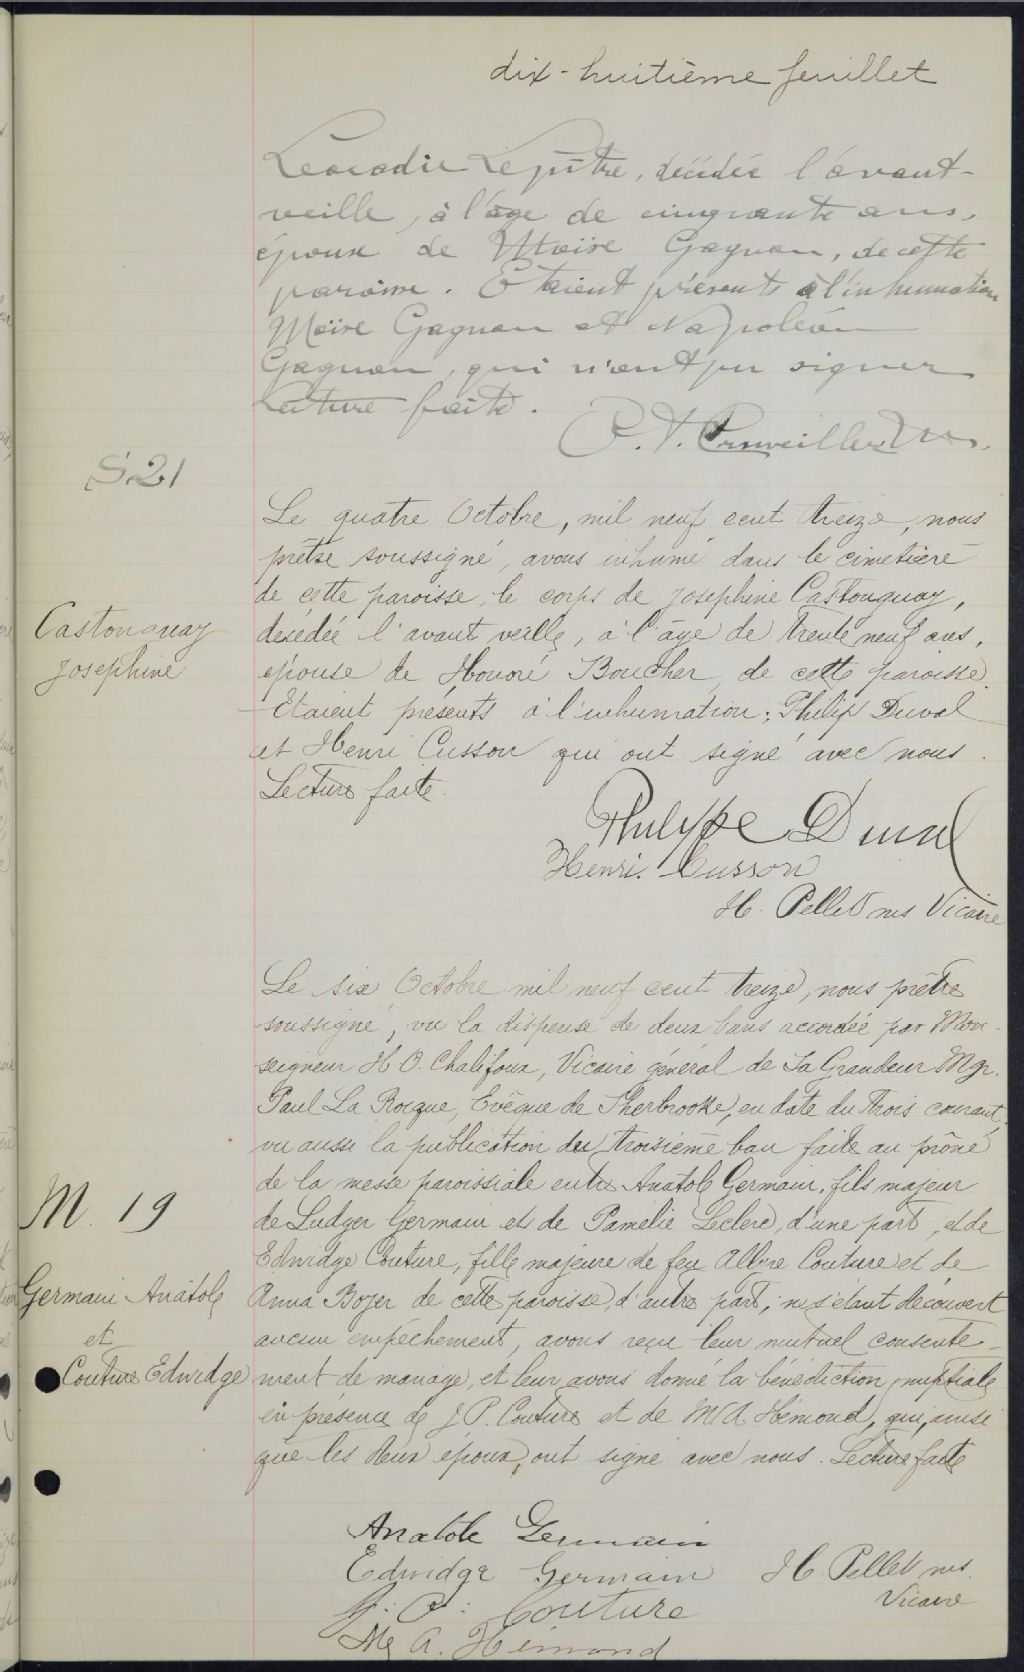 dix-huitième feuillet
Léocadie Lepître, décédée l'avant-
veille, à l'âge de cinquante ans,
épouse de Moïse Gagnon, de cette
paroisse. Etaient présents à l'inhumation
Moïse Gagnon et Napoléon
Gagnon, qui n'ont pu signer
Lecture faite.
S 21
Le quatre Octobre, mil neuf cent treize, nous
prêtre soussigné, avons inhumé dans le cimetière
de cette paroisse, le corps de Josephine Castonguay,
Castonguay
Josephine
décédée l'avant veille, à l'âge de trente neuf ans,
épouse de Honoré Boucher, de cette paroisse.
Etaient présents à l'inhumation: Philip Duval
et Henri Cusson qui ont signé avec nous.
Lecture faite.
Philippe Duval
Henri Cusson
H. Pellet Vicaire
Le six Octobre mil neuf cent treize, nous prêtre
soussigné, vu la dispense de deux bans accordée par Mon-
seigneur H O. Chalifoux, Vicaire général de Sa Grandeur Mgr.
Paul La Rocque, Evêque de Sherbrooke, en date du trois courant,
vu aussi la publication du troisième ban faite au prône
de la messe paroissiale entre Anatole Germain, fils majeur
M. 19
de Ludger Germain et de Pamelie Leclerc, d'une part, et de
Edwidge Couture, fille majeure de feu Couture et de
Germain Anatole
et
Couture Edwidge
Anna Boyer de cette paroisse, d'autre part; ne s'étant découvert
aucun empêchement, avons reçu leur mutuel consente-
ment de mariage, et leur avons donné la bénédiction nuptiale
en présence de J. P. Couture et de M. A Hémond, qui, ainsi
que les deux époux, ont signé avec nous. Lecture faite
Anatole Germain
Edwidge Germain H. Pellet
Vicaire
J. P. Couture
A. Hémond